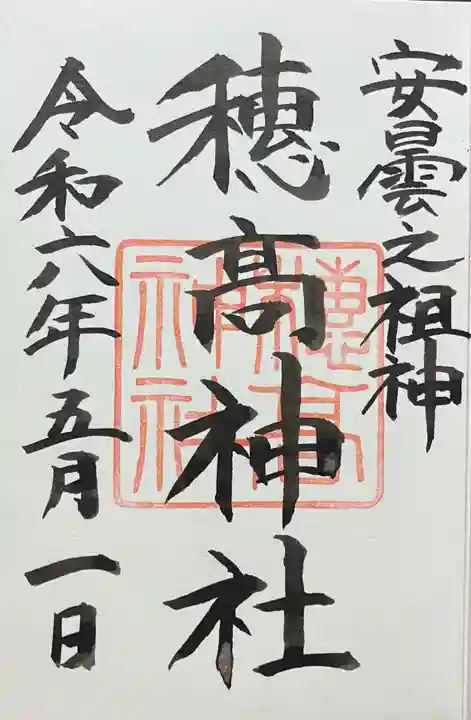 安曇之祖神
穂髙神社
令和六年五月一日
穂高神社